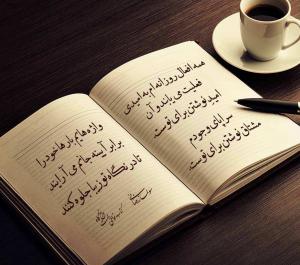 همه افعال روزانه ام به امیدی
فعلیت می یابند و آن
امید نوشتن برای توست
سراپای وجودم
مشتاق نوشتن برای توست.
واژه هایم بارها خود را
برابر آینه جانم می آرایند
تا در نگاه تو زیبا جلوه کنند